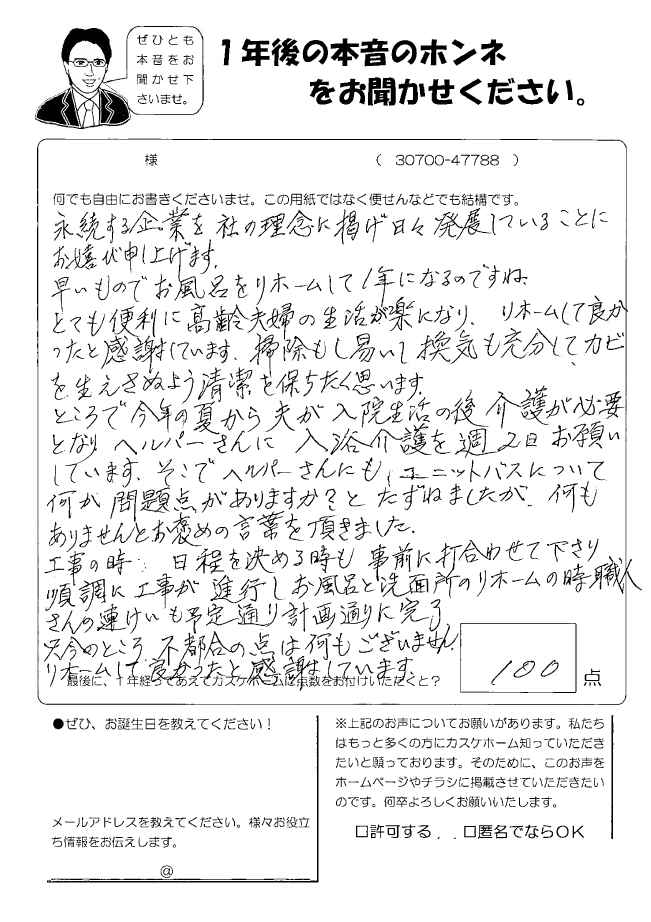 ぜひとも
本音をお
聞かせ下
さいませ。
１年後の本音のホンネ
をお聞かせください。
様
（ 30700-47788 ）
何でも自由にお書きくださいませ。この用紙ではなく便せんなどでも結構です。
永続する企業を社の理念に掲げ日々発展していることに
お嬉び申し上げます。
早いものでお風呂をリホームして1年になるのですね、
とても便利に高齢夫婦の生活が楽になり、リホームして良か
ったと感謝しています。掃除もし易いし換気も充分して、カビ
を生えさぬよう清潔を保ちたく思います。
ところで今年の夏から夫が入院生活の後介護が必要
となりヘルパーさんに入浴介護を週2日お願い
しています。そこでヘルパーさんにも、ユニットバスについて
何か問題点がありますか？とたずねましたが、何も
ありませんとお褒めの言葉を頂きました。
工事の時、日程を決める時も事前に打合わせて下さり
順調に工事が進行しお風呂と洗面所のリホームの時職人
さんの連けいも予定通り計画通りに完了
只今のところ不都合の点は何もございません
リホームして良かったと感謝しています。
最後に、１年経ってあえてカスケホームに点数をお付けいただくと？
100 点
●ぜひ、お誕生日を教えてください！
メールアドレスを教えてください。様々お役立
ち情報をお伝えします。
@
※上記のお声についてお願いがあります。私たち
はもっと多くの方にカスケホーム知っていただき
たいと願っております。そのために、このお声を
ホームページやチラシに掲載させていただきたい
のです。何卒よろしくお願いいたします。
□許可する．．□匿名でならOK